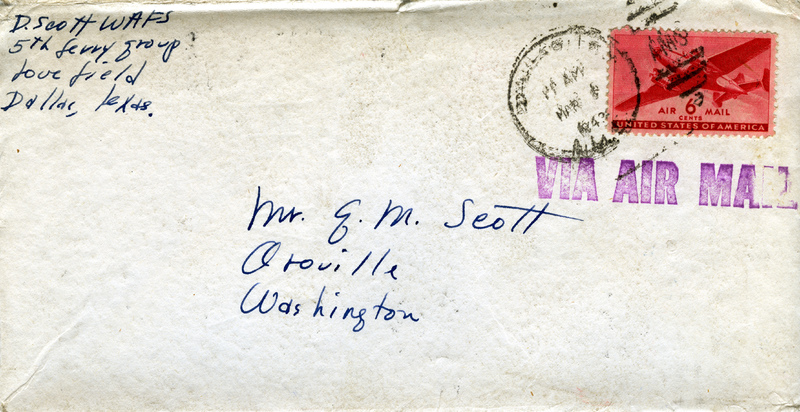 D. Scott WAFS
5th ferry group
Love field
Dallas, Texas.
1943
ALA
AIR 6 MAIL
CENTS
UNITED STATES OF AMERICA
VIA AIR MAIL
Mr. E. M. Scott
Oroville
Washington